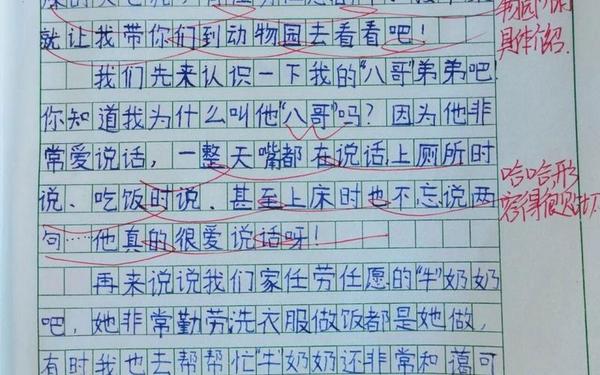 就让我带你们到动物园去看看吧！
具体介绍.
我们先来认识一下我的“八哥”弟弟吧
你知道我为什么叫他“八哥”吗？因为他非
常爱说话，一整天嘴都在说话，上厕所时
说、吃饭时说、甚至上床时也不忘说两
哈哈,形
容得很
句……他真的很爱说话呀！
再来说说我们家任劳任愿的“牛”奶奶
吧，她非常勤劳洗衣服做饭都是她做，
有时我也去帮帮忙“牛”奶奶还非常和蔼可